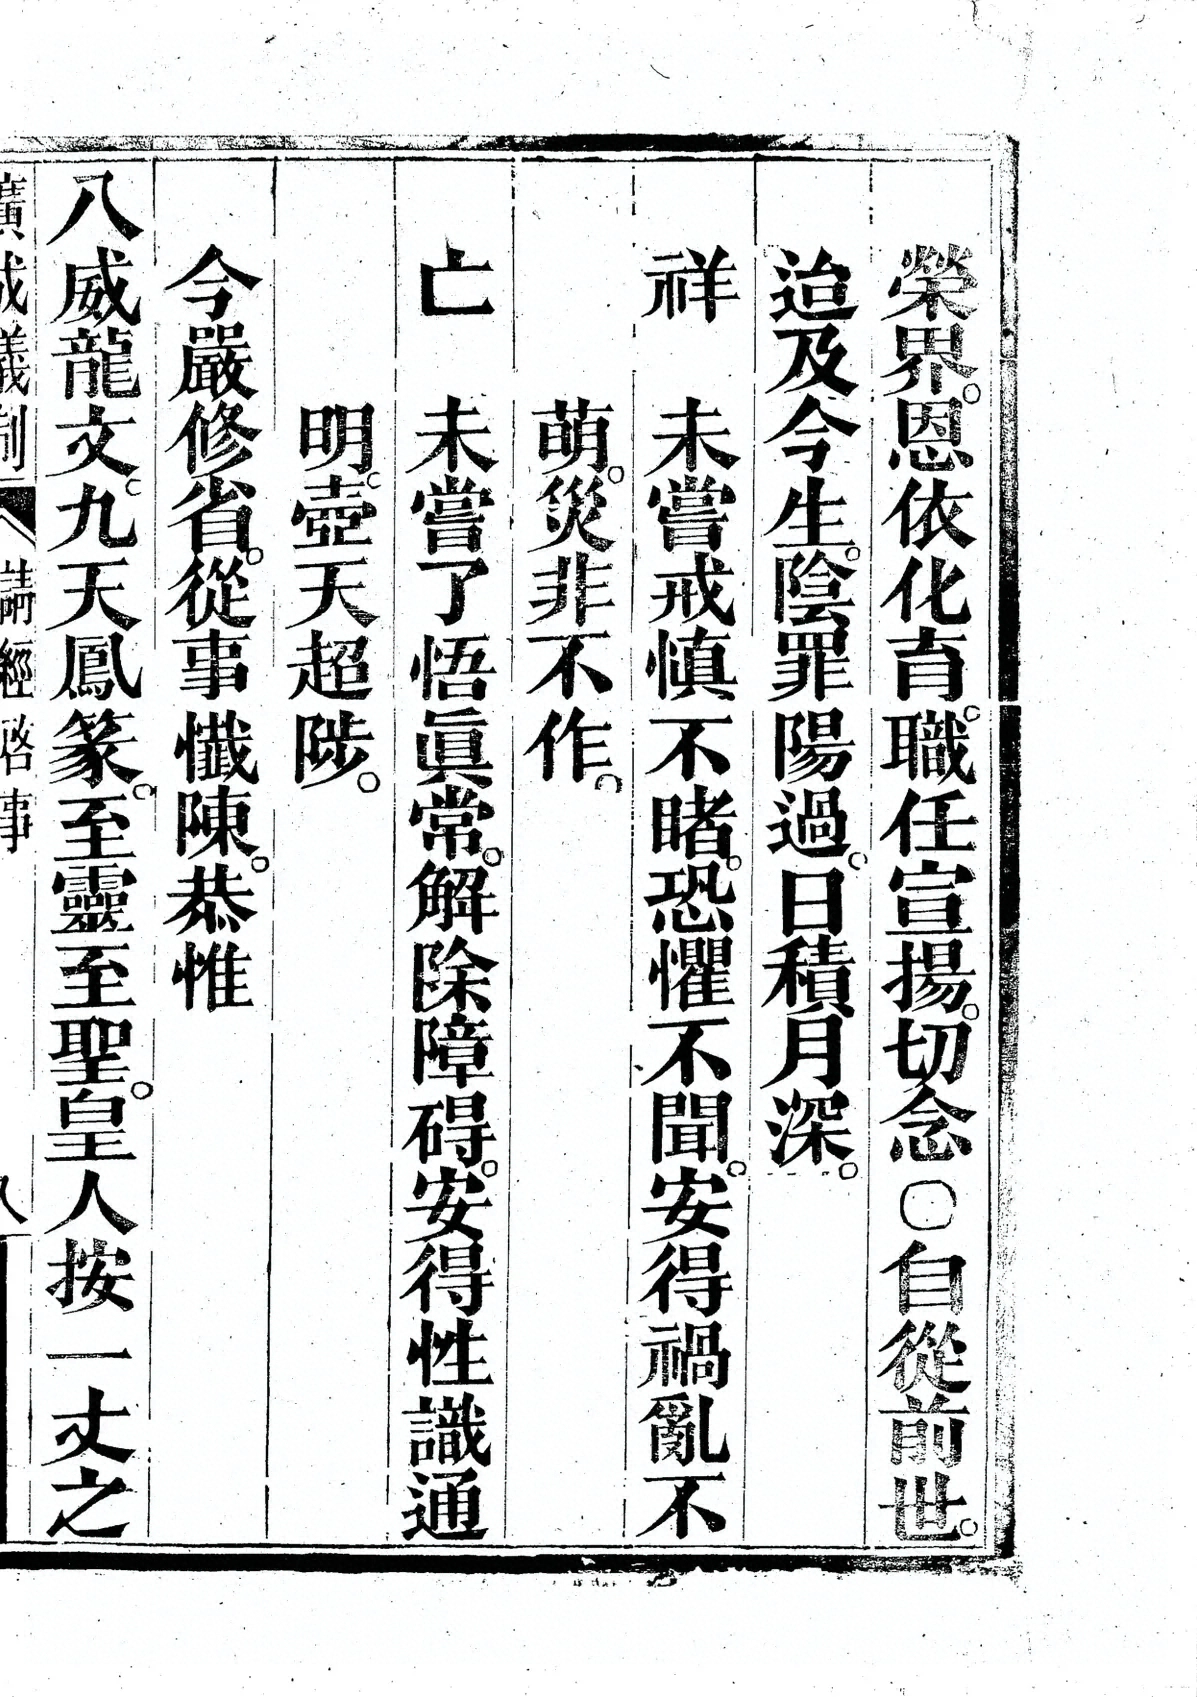 榮界。恩依化育。職任宣揚。切念〇自從前世。
迨及今生。陰罪陽過。日積月深。
祥　未嘗戒慎不睹。恐懼不聞。安得禍亂不
萌。災非不作。
亡　未嘗了悟眞常。解除障碍。安得性識通
明。壺天超陟。
今嚴修省。從事懺陳。恭惟
八威龍文。九天鳳篆。至靈至聖。皇人按一丈之
廣成儀制　請經啓事　八